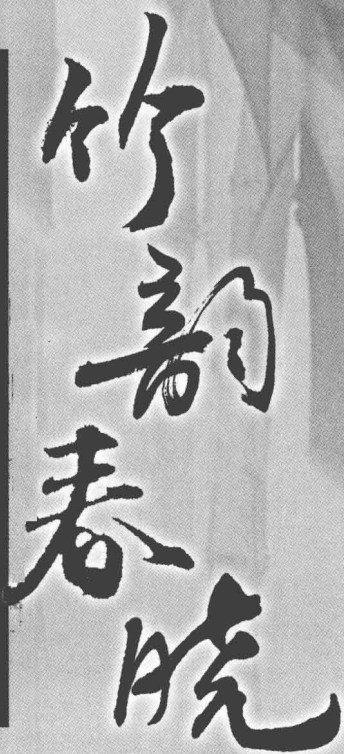 竹韵春晓